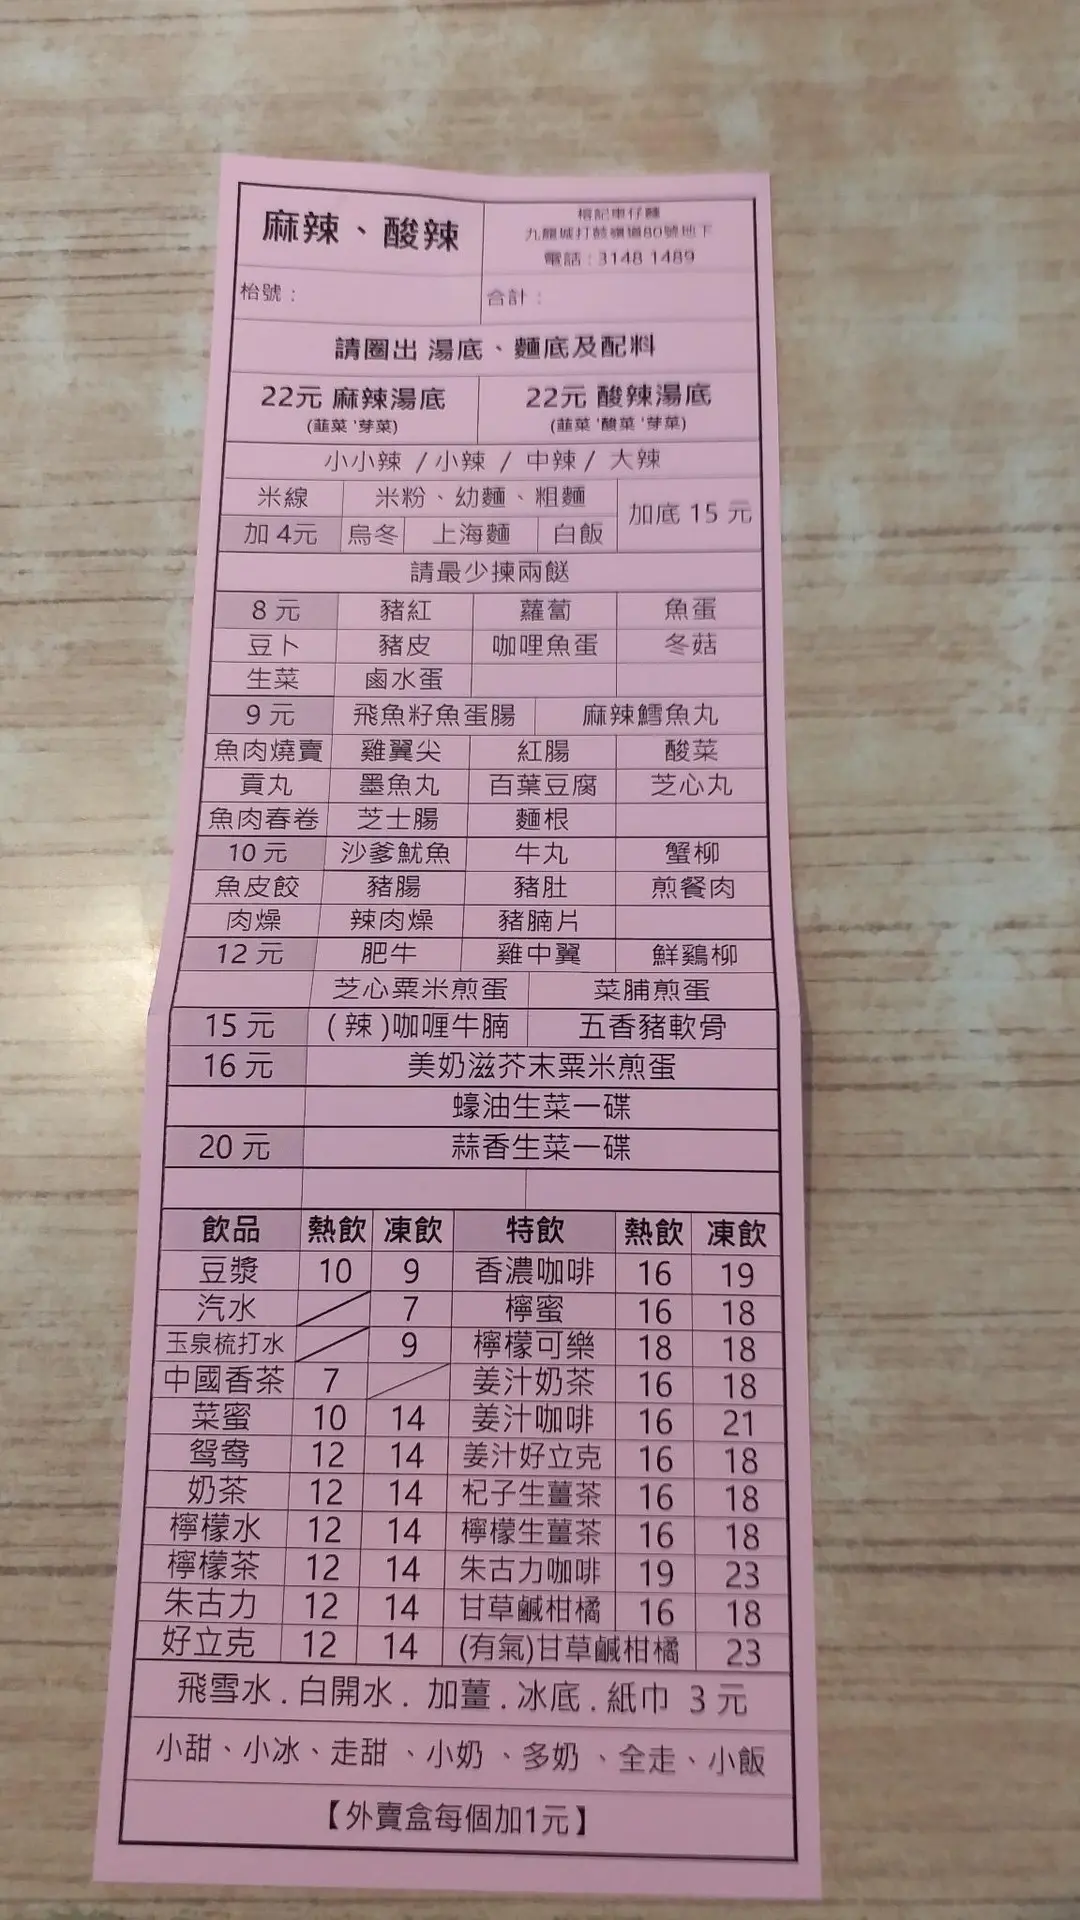 麻辣、酸辣
榕記車仔麵
九龍城打鼓嶺道80號地下
電話：3148 1489
枱號：
合計：
請圈出 湯底、麵底及配料
22元 麻辣湯底
(韮菜 '芽菜)
22元 酸辣湯底
(韮菜 '酸菜 '芽菜)
小小辣 / 小辣 / 中辣 / 大辣
米線 米粉、幼麵、粗麵 加底 15 元
加 4元 烏冬 上海麵 白飯
請最少揀兩餸
8 元 豬紅 蘿蔔 魚蛋
豆卜 豬皮 咖哩魚蛋 冬菇
生菜 鹵水蛋
9 元 飛魚籽魚蛋腸 麻辣鱈魚丸
魚肉燒賣 雞翼尖 紅腸 酸菜
貢丸 墨魚丸 百葉豆腐 芝心丸
魚肉春卷 芝士腸 麵根
10 元 沙爹魷魚 牛丸 蟹柳
魚皮餃 豬腸 豬肚 煎餐肉
肉燥 辣肉燥 豬腩片
12 元 肥牛 雞中翼 鮮鷄柳
芝心粟米煎蛋 菜脯煎蛋
15 元 (辣)咖喱牛腩 五香豬軟骨
16 元 美奶滋芥末粟米煎蛋
蠔油生菜一碟
20 元 蒜香生菜一碟
飲品 熱飲 凍飲 特飲 熱飲 凍飲
豆漿 10 9 香濃咖啡 16 19
汽水 7 檸蜜 16 18
玉泉梳打水 9 檸檬可樂 18 18
中國香茶 7 姜汁奶茶 16 18
菜蜜 10 14 姜汁咖啡 16 21
鴛鴦 12 14 姜汁好立克 16 18
奶茶 12 14 杞子生薑茶 16 18
檸檬水 12 14 檸檬生薑茶 16 18
檸檬茶 12 14 朱古力咖啡 19 23
朱古力 12 14 甘草鹹柑橘 16 18
好立克 12 14 (有氣)甘草鹹柑橘 23
飛雪水 . 白開水 . 加薑 . 冰底 . 紙巾 3 元
小甜、小冰、走甜、小奶、多奶、全走、小飯
【外賣盒每個加1元】